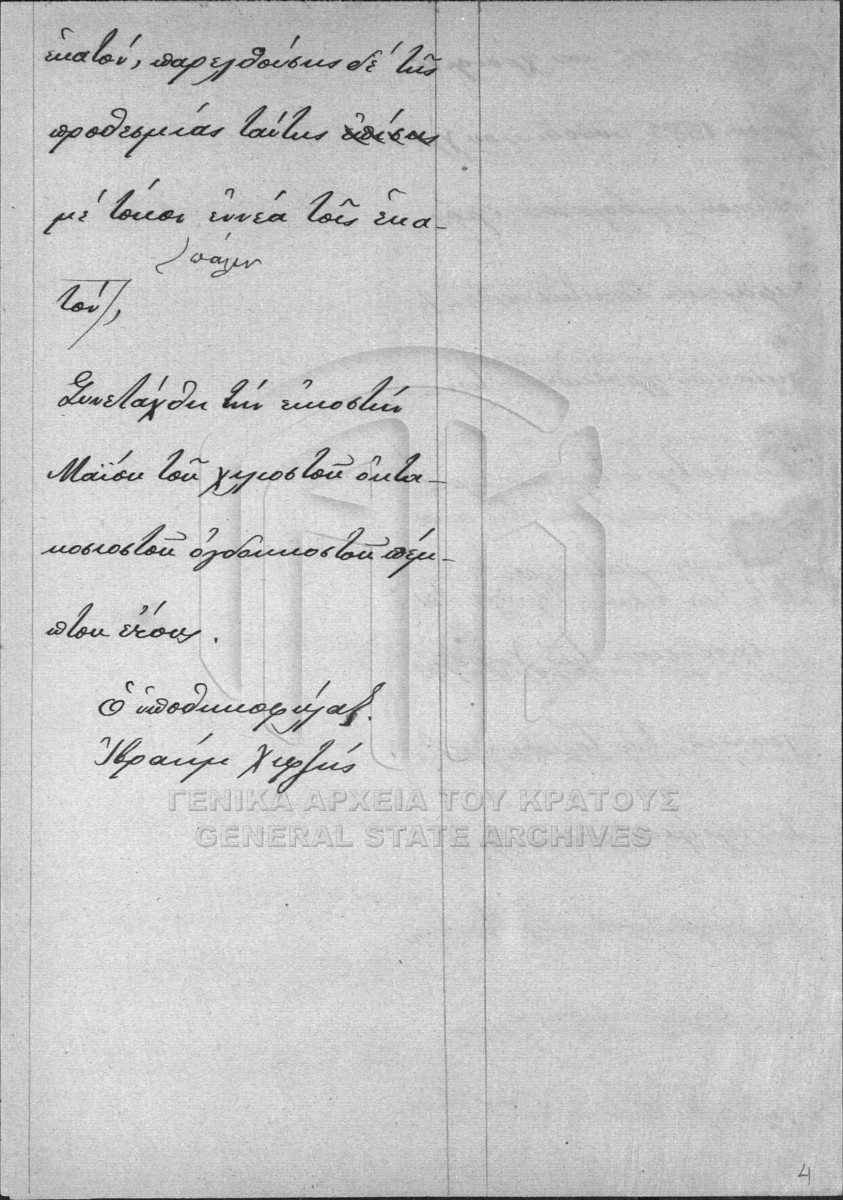 ἑκατόν, παρελθούσης δέ τῆς
προθεσμίας ταύτης ἐπίσης
μέ τόκον ἐννέα τοῖς ἑκα-
πάλιν
τόν,
Συνετάχθη τήν εἰκοστήν
Μαΐου τοῦ χιλιοστοῦ ὀκτα-
κοσιοστοῦ ὀγδοηκοστοῦ πέμ-
πτου ἔτους.
Ὁ ὑποθηκοφύλαξ.
Ἰβραήμ
ΓΕΝΙΚΑ ΑΡΧΕΙΑ ΤΟΥ ΚΡΑΤΟΥΣ
GENERAL STATE ARCHIVES
4